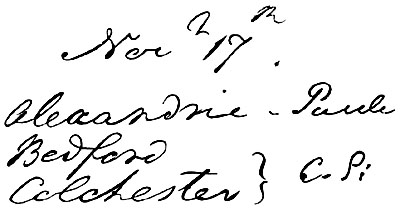 Novr 17th.
Alexandrie - Paule
Bedford
Colchester } C. Pi